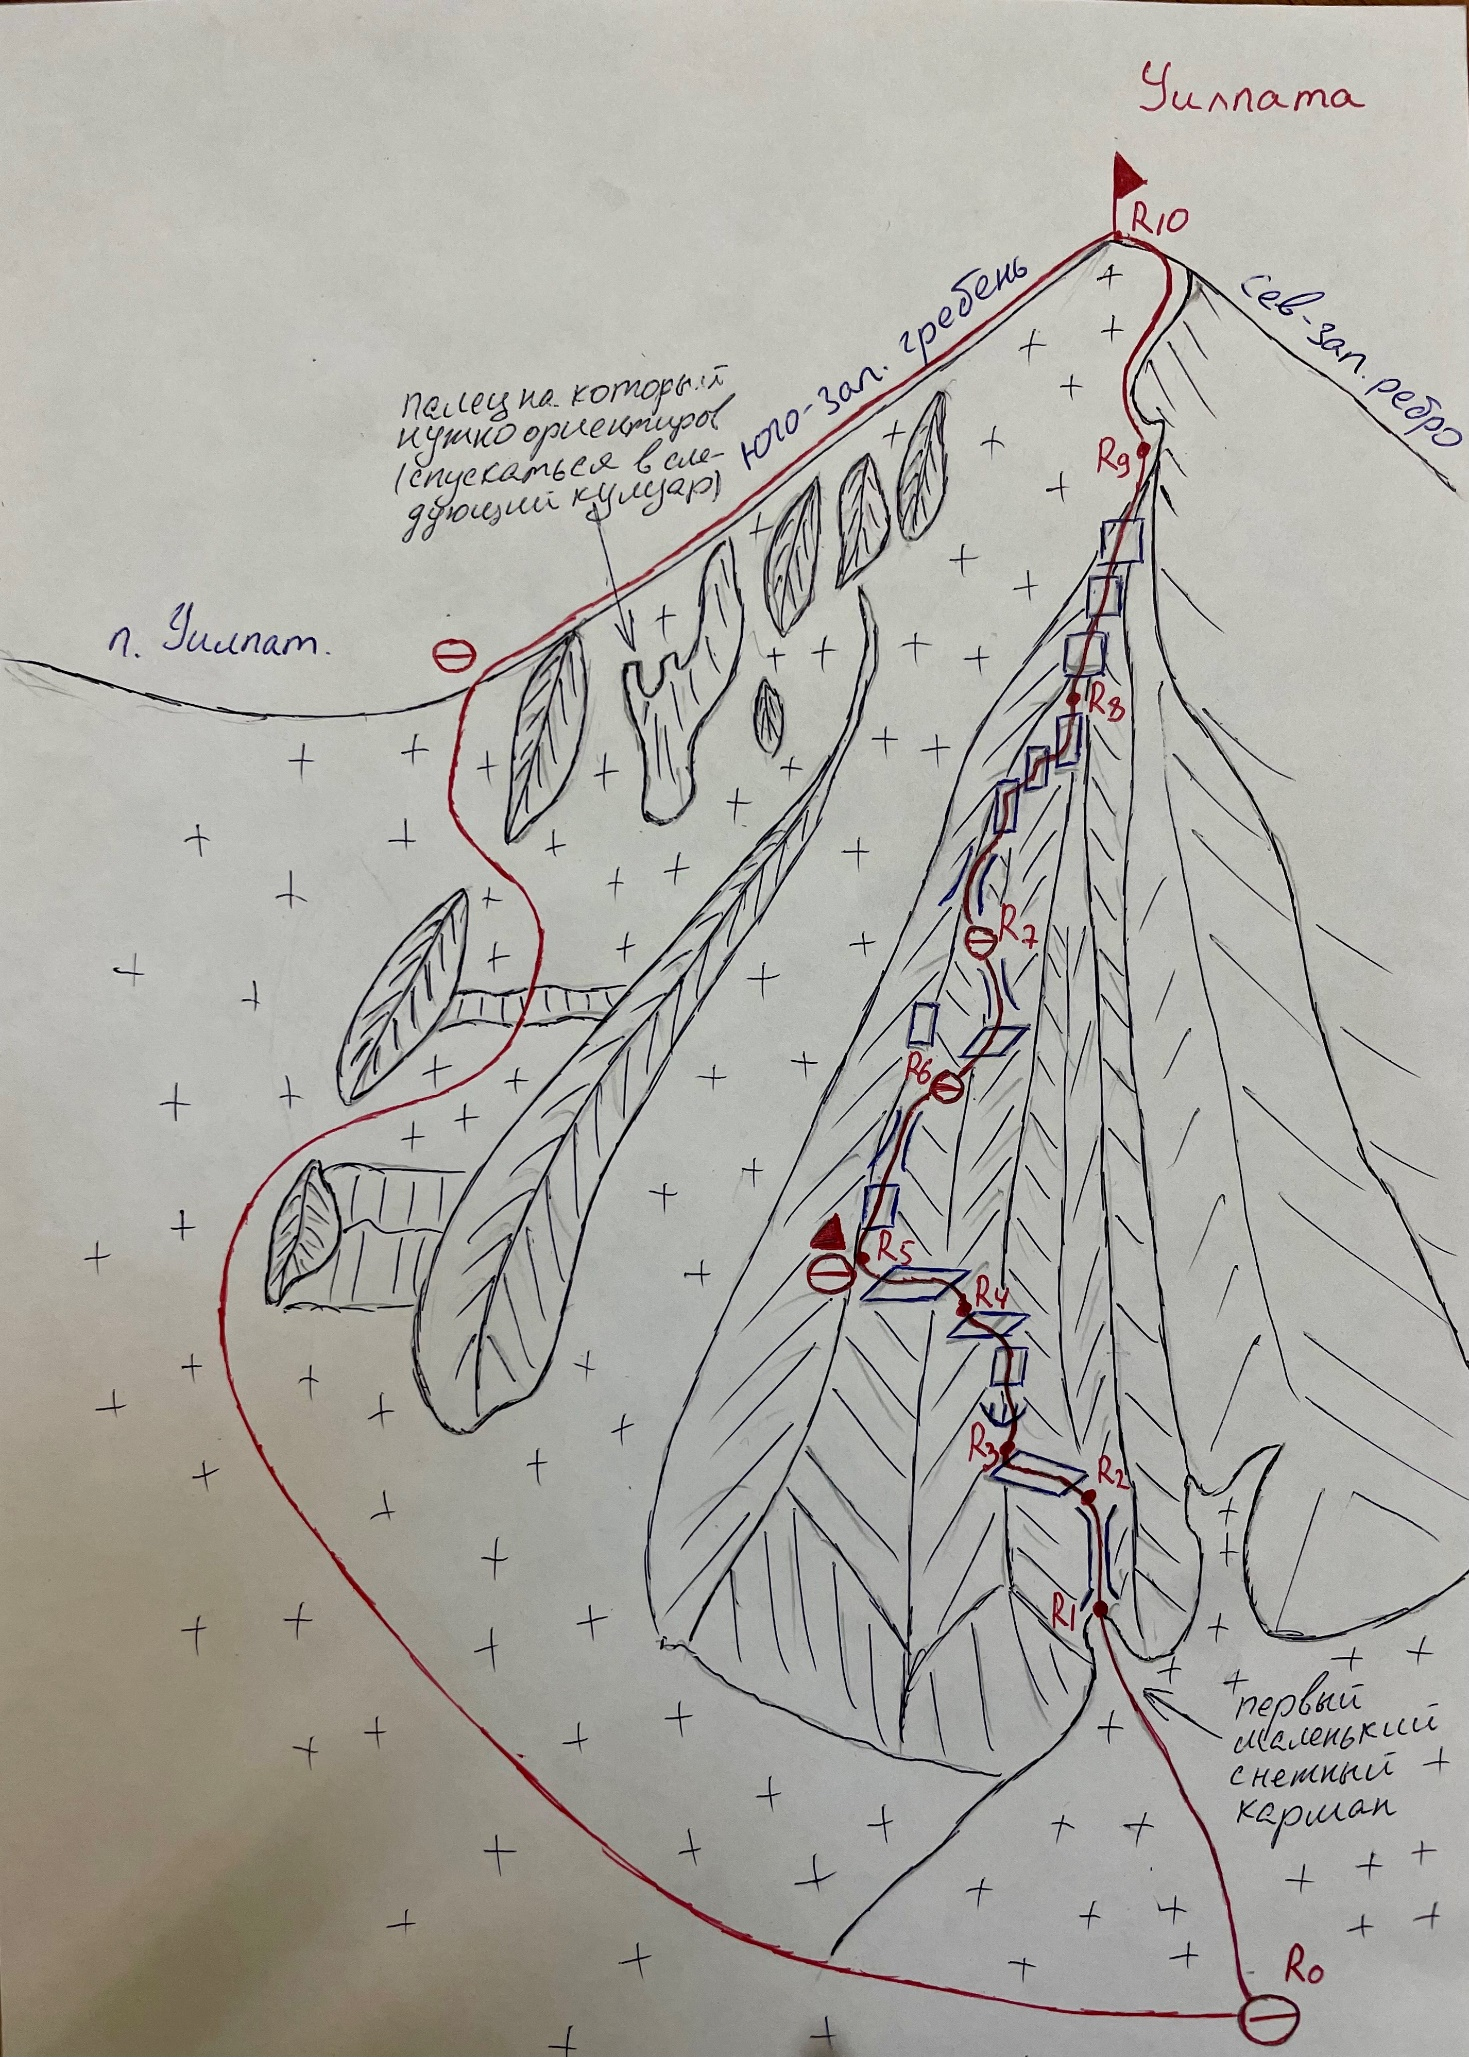 Уилпата
R10
юго-зап. гребень
сев-зап. ребро
палец на который
нужно ориентиров
(спускаться в сле-
дующий кулуар)
R9
п. Уилпат.
R8
R7
R6
R5
R4
R3
R2
R1
первый
маленький
снежный
карман
R0